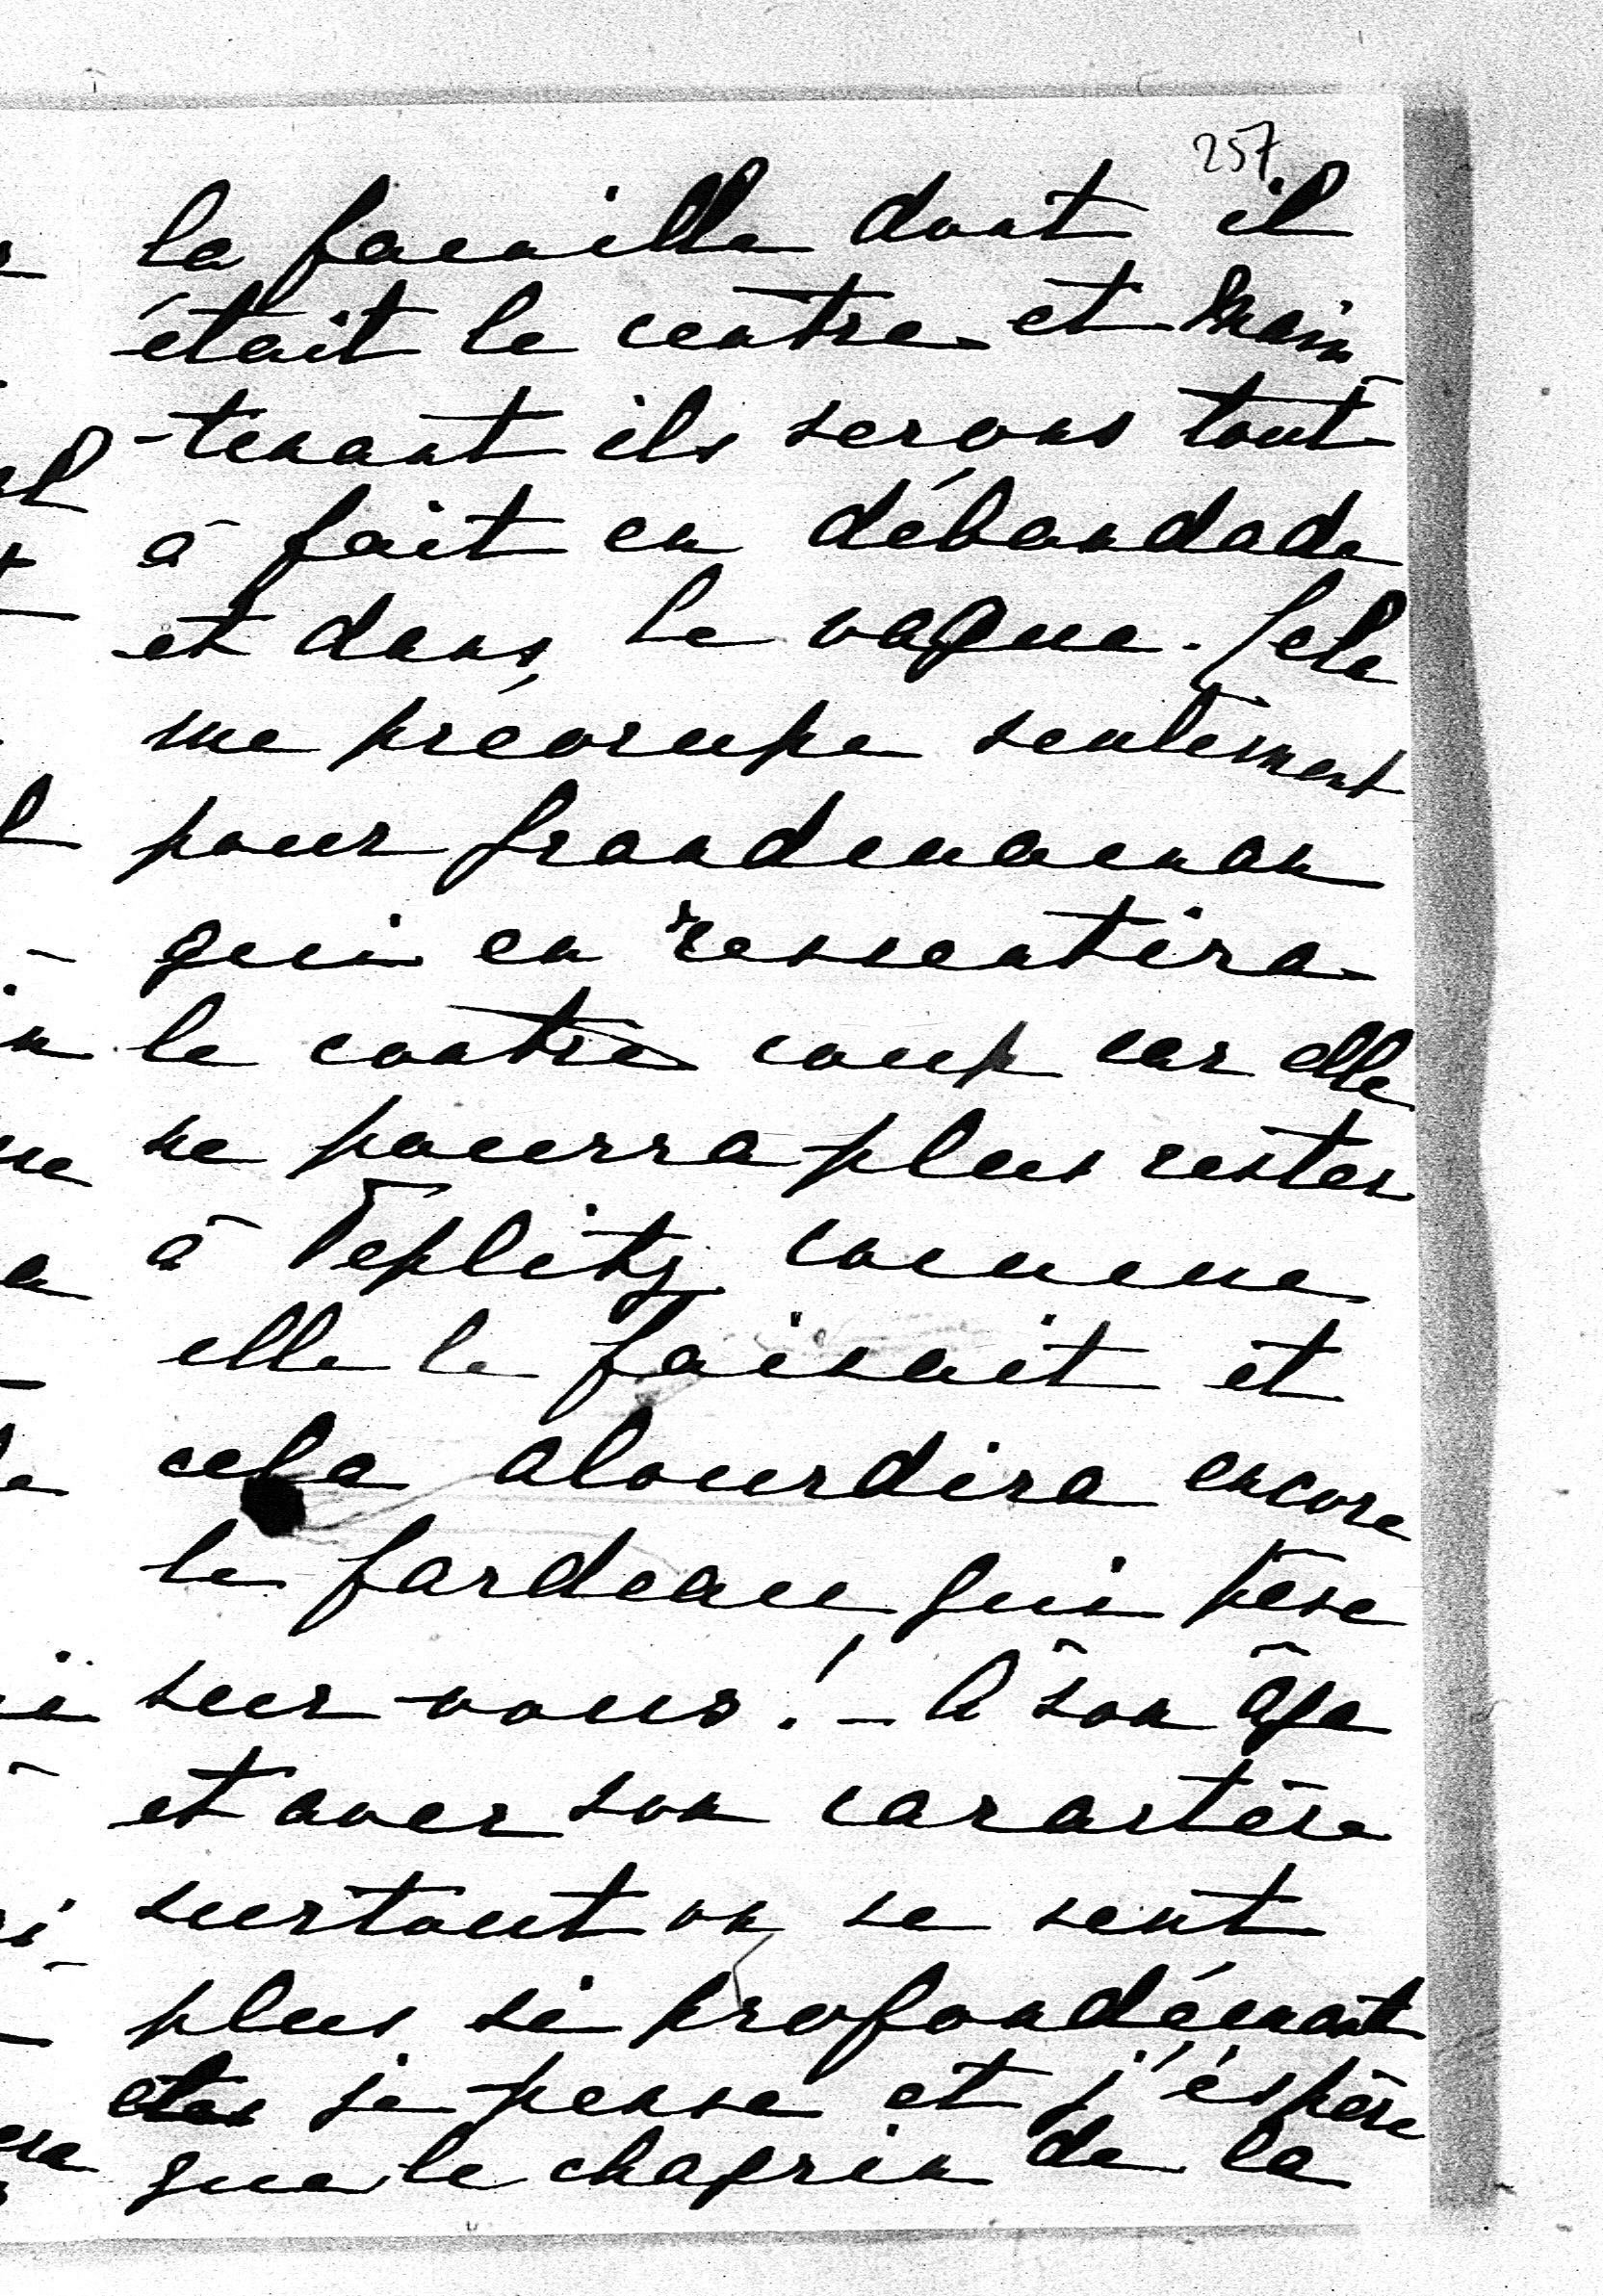 257
la famille dont il
était le centre et main
-tenant ils serons tout
à fait en débandade
et dans le vague. Cela
me préocupe seulement
pour grandmaman
qui en ressentira
le contre coup car elle
ne pourra plus rester
à Teplitz comme
elle le faisait et
cela alourdira encore
le fardeau qui pèse
sur vous! – A son âge
et avec son caractère
surtout on ne sent
plus si profondément
je pense et j'éspère
que le chagrin de la